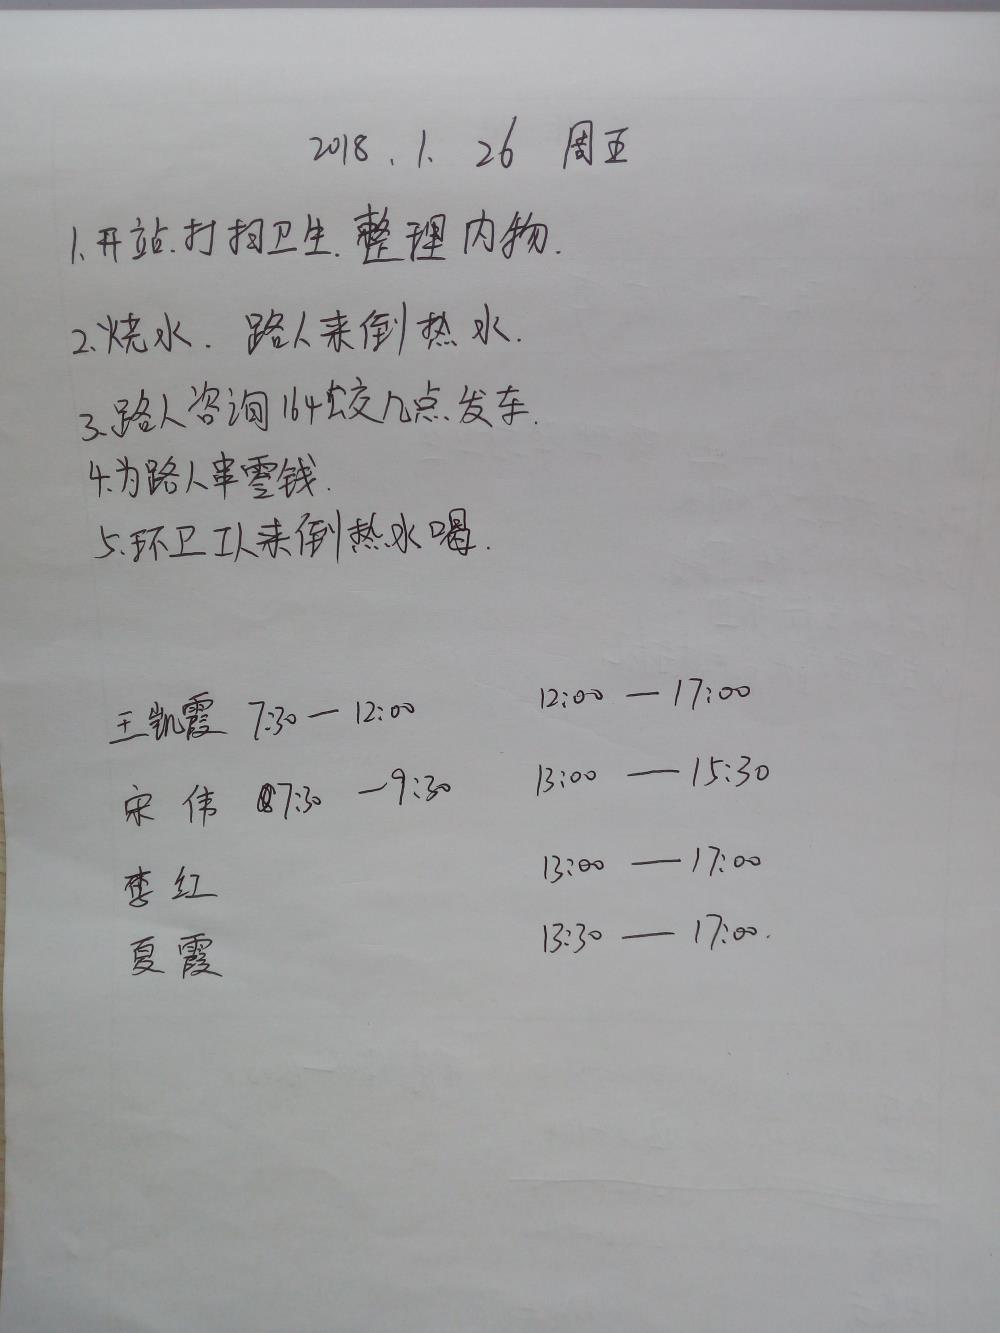 2018.1.26 周五
1.开站.打扫卫生.整理内物.
2.烧水.路人来倒热水.
3.路人咨询164公交几点发车.
4.为路人串零钱.
5.环卫工人来倒热水喝.
王凯霞 7:30—12:00 12:00—17:00
宋伟 7:30—9:30 13:00—15:30
李红 13:00—17:00
夏霞 13:30—17:00.